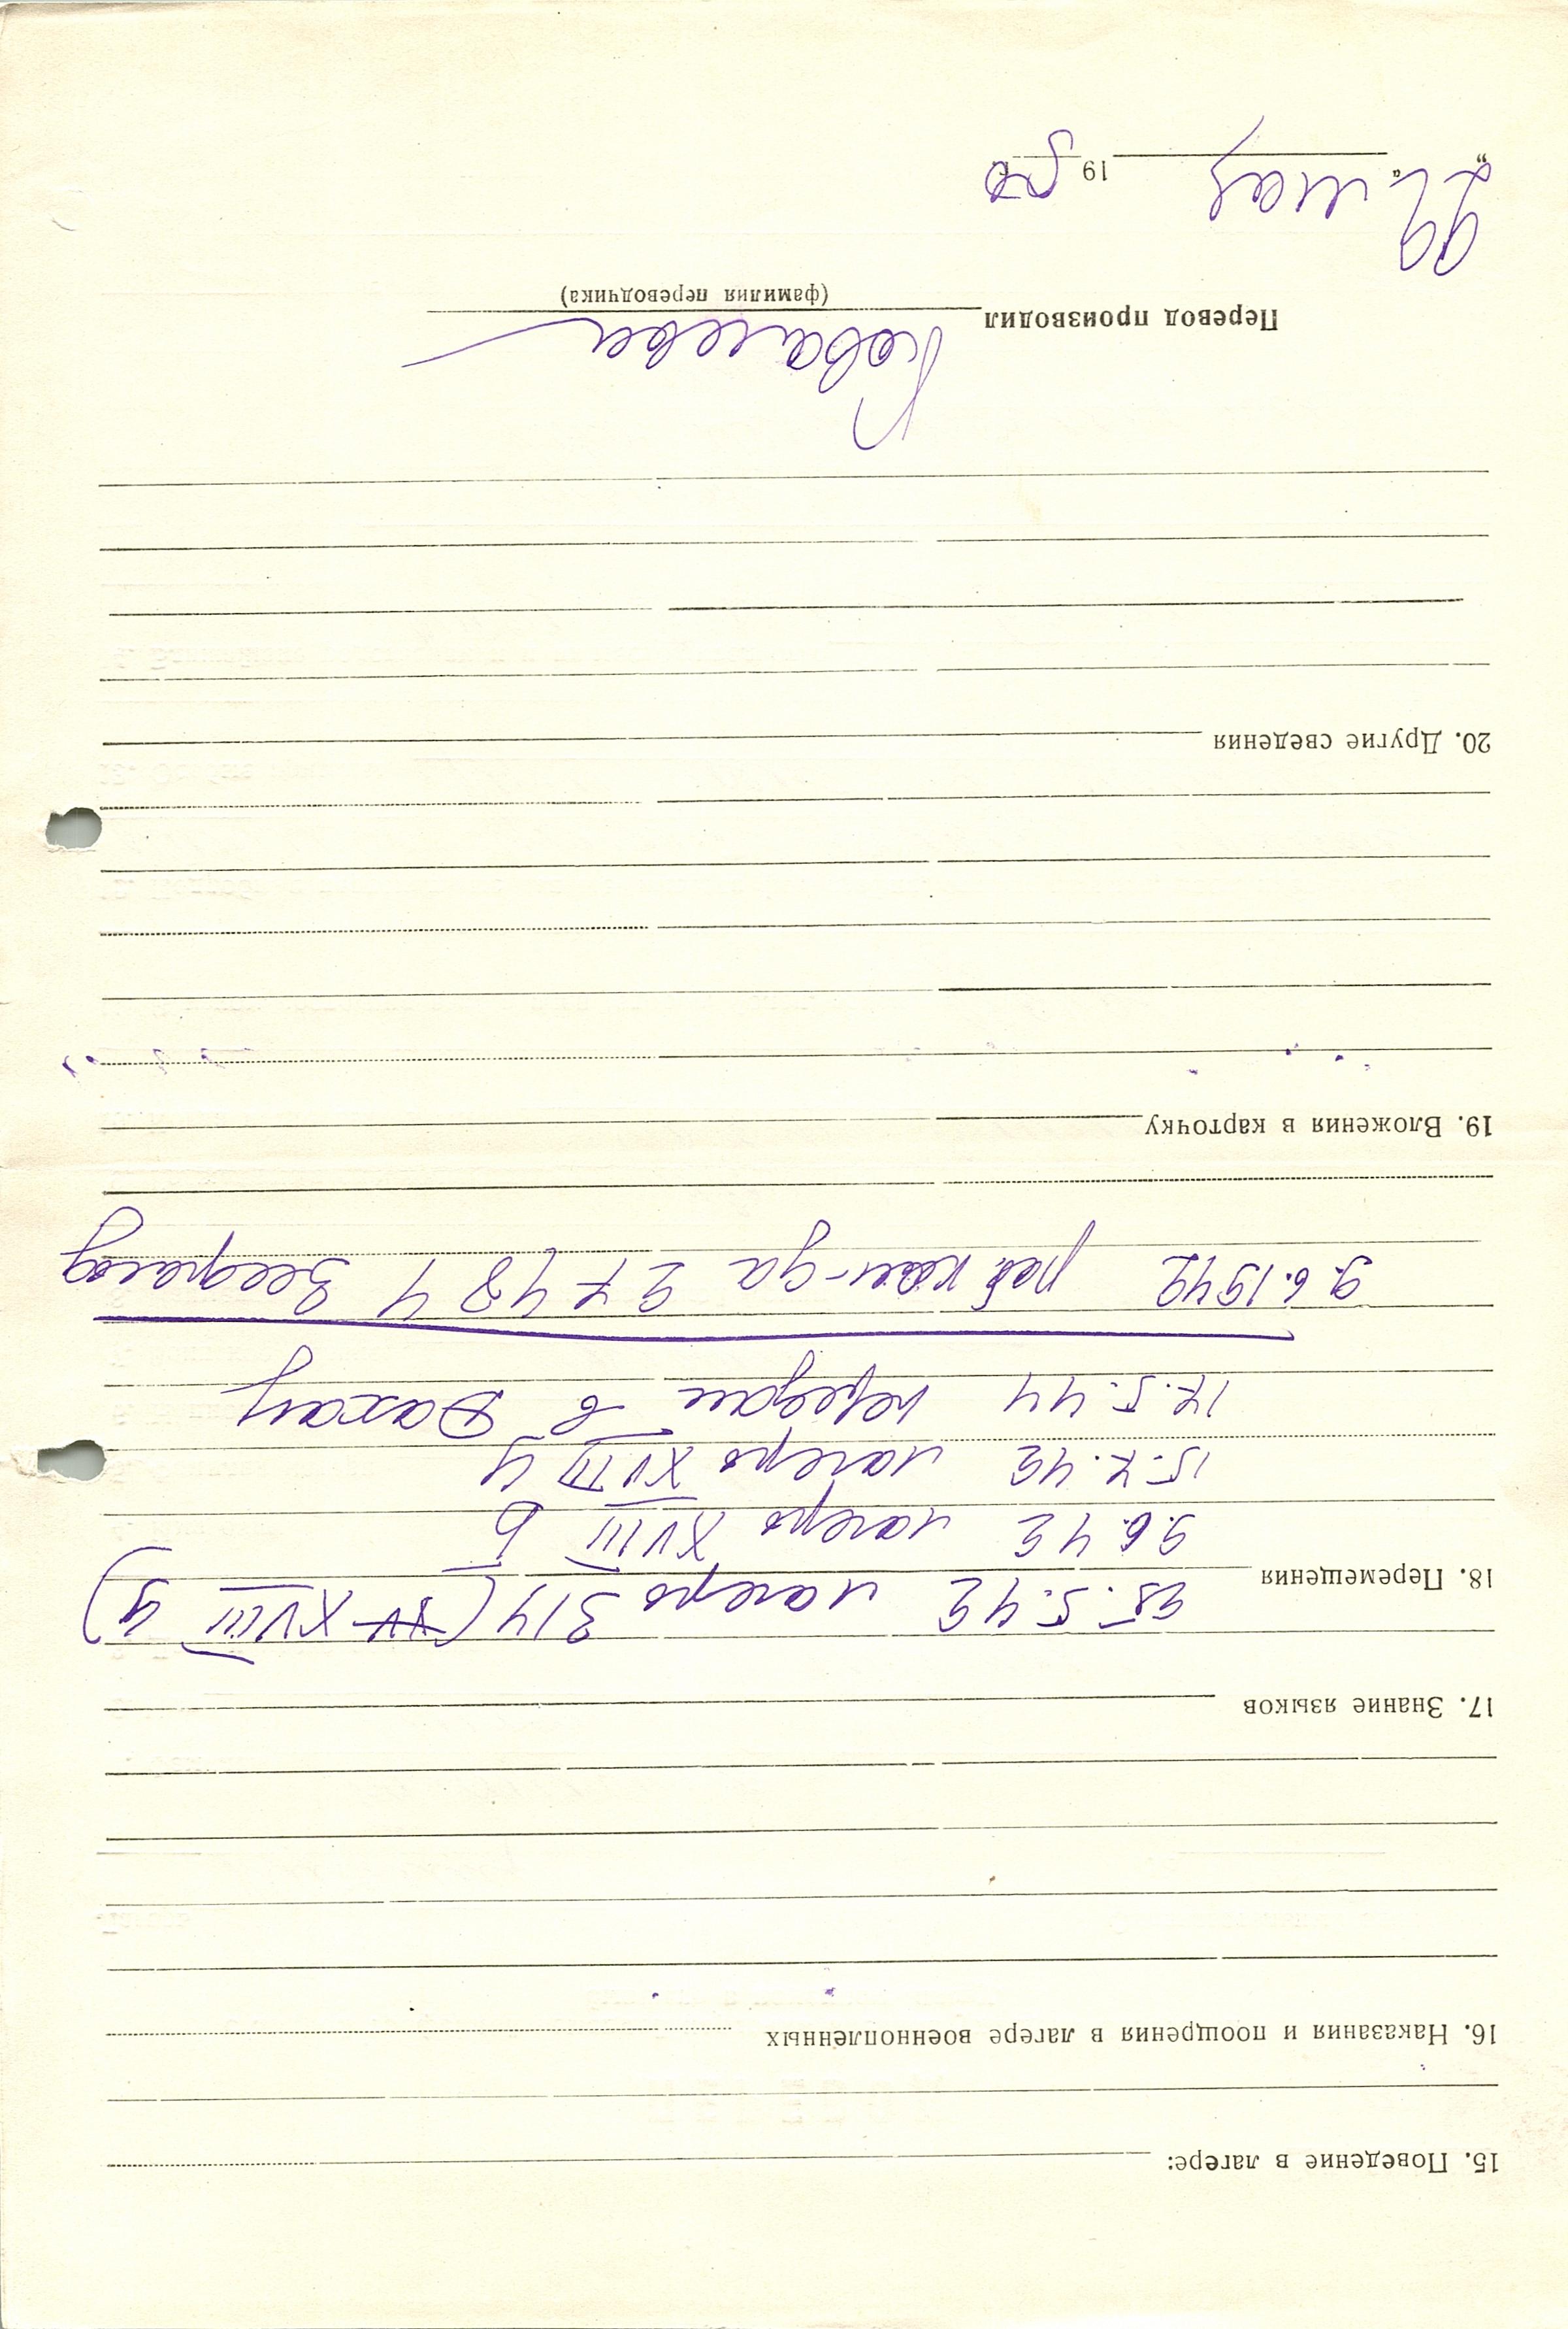 15. Поведение в лагере:
16. Наказания и поощрения в лагере военнопленных
17. Знание языков
18. Перемещения 25.5.42 лагерь 314 (XV XVIII Ц)
9.6.42 лагерь XVIII Б
15.7.42 лагерь XVIII Ц
17.5.44 передан в Дахау
9.6.1942 раб ком-да
19. Вложения в карточку
20. Другие сведения
Перевод производил Ковалева
(фамилия переводчика)
„22“ мая 1950